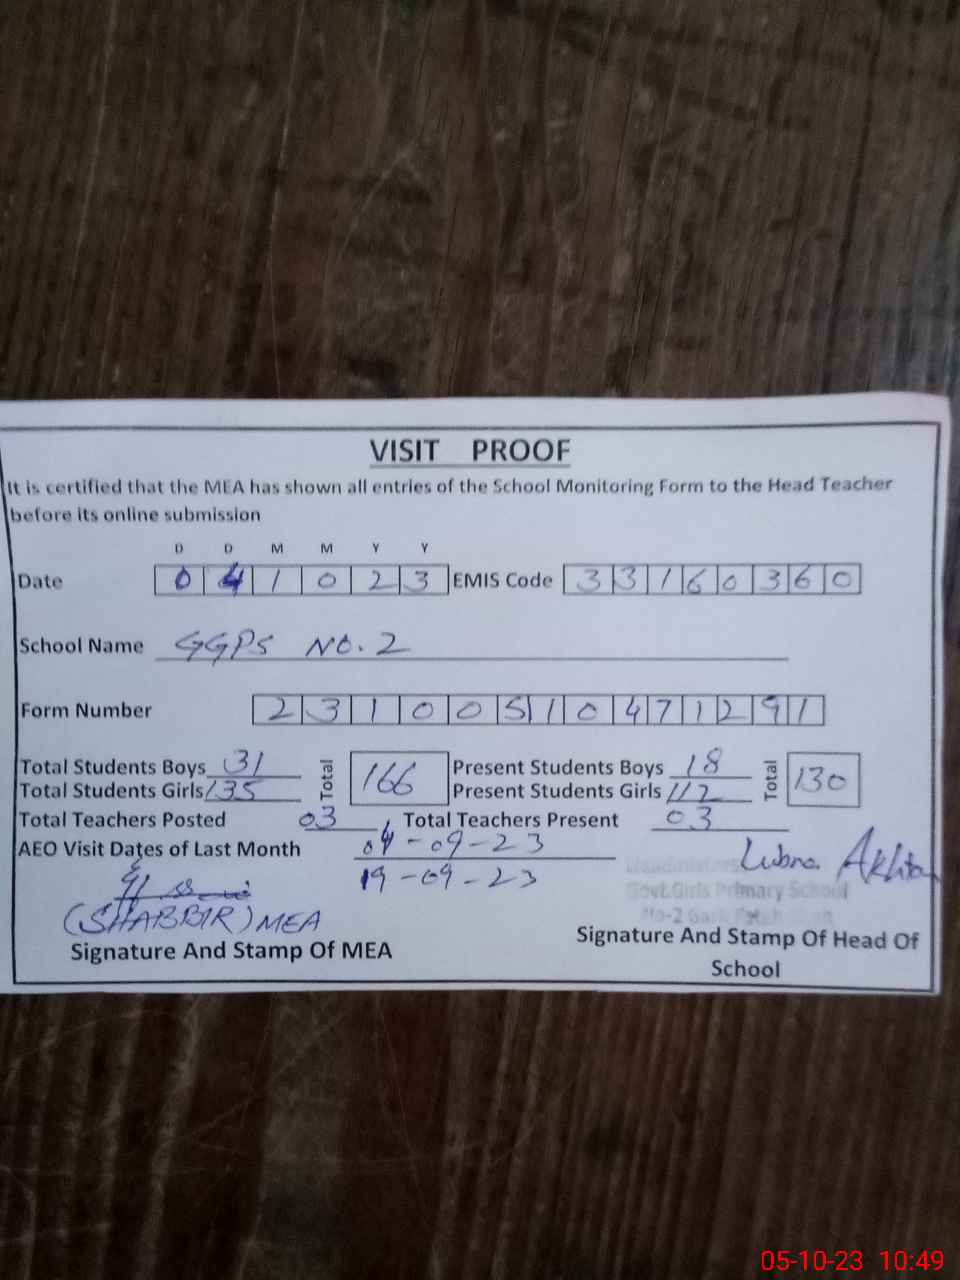 VISIT PROOF
It is certified that the MEA has shown all entries of the School Monitoring Form to the Head Teacher
before its online submission
D D M M Y Y
Date 0 4 1 0 2 3 EMIS Code 3 3 1 6 0 3 6 0
School Name GGPS NO. 2
Form Number 2 3 1 0 0 5 1 0 4 7 1 2 9 1
Total Students Boys 31 Total 166 Present Students Boys 18 Total 130
Total Students Girls 135 Present Students Girls 112
Total Teachers Posted 03 Total Teachers Present 03
AEO Visit Dates of Last Month 04-09-23
19-09-23
Lubna Akhtar
Govt.Girls Primary School
No-2
(SHABBIR) MEA
Signature And Stamp Of MEA
Signature And Stamp Of Head Of
School
05-10-23 10:49